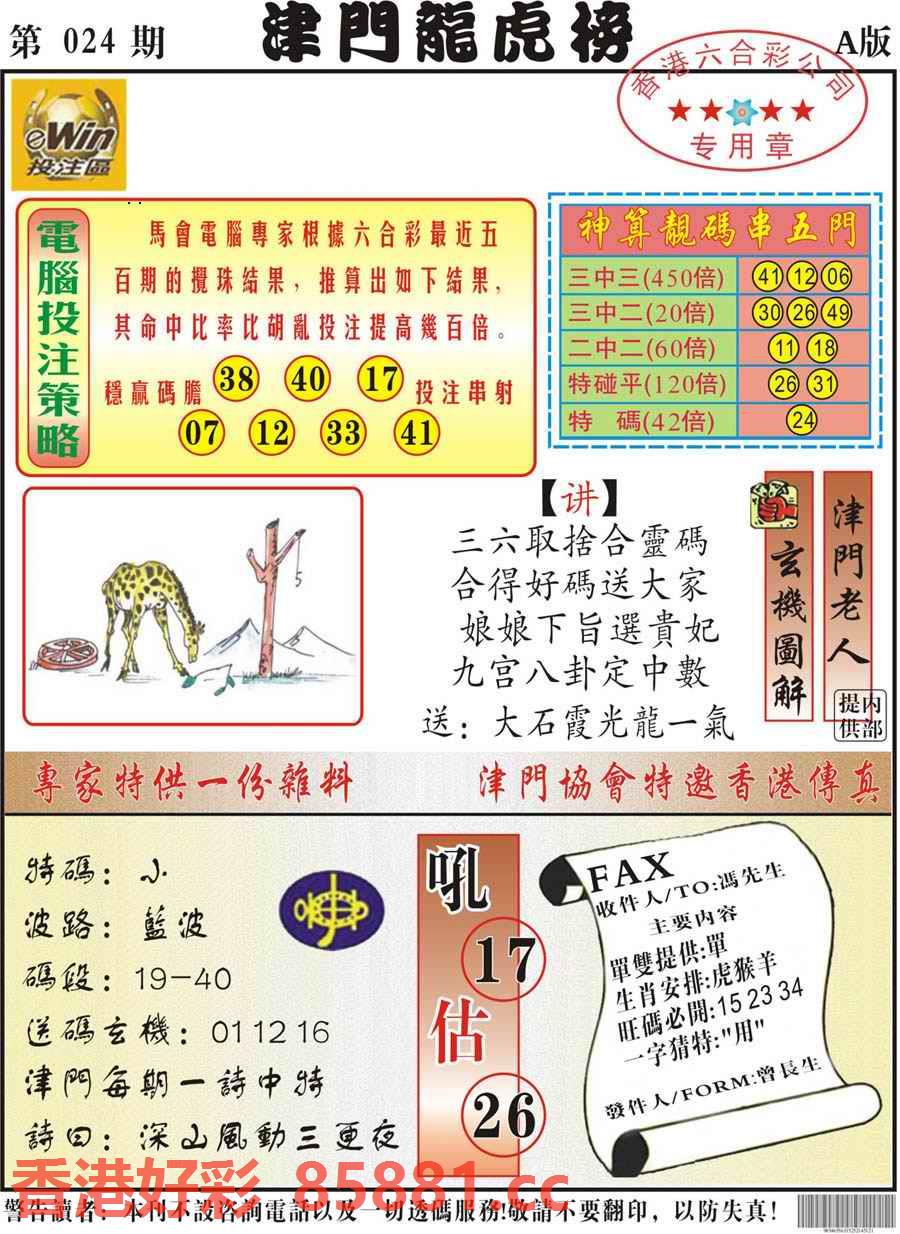 第 024 期
津門龍虎榜
A版
香港六合彩公司
★★★★
专用章
eWin
投注區
電腦投注策略
馬會電腦專家根據六合彩最近五
百期的攪珠結果，推算出如下結果，
其命中比率比胡亂投注提高幾百倍。
穩贏碼膽 38 40 17 投注串射
07 12 33 41
神算靚碼串五門
三中三(450倍) 41 12 06
三中二(20倍) 30 26 49
二中二(60倍) 11 18
特碰平(120倍) 26 31
特 碼(42倍) 24
【讲】
三六取捨合靈碼
合得好碼送大家
娘娘下旨選貴妃
九宫八卦定中數
送：大石霞光龍一氣
玄機圖解
津門老人
提供
内部
專家特供一份雜料
津門協會特邀香港傳真
特碼：小
波路：藍波
碼段：19-40
送碼玄機：01 12 16
津門每期一詩中特
詩曰：深山風動三更夜
吼
17
估
26
FAX
收件人/TO:馮先生
主要内容
單雙提供:單
生肖安排:虎猴羊
旺碼必開:15 23 34
一字猜特:"用"
發件人/FORM:曾長生
香港好彩 85881.cc
警告讀者：本刊不設咨詢電話以及一切透碼服務!敬請不要翻印，以防失真!